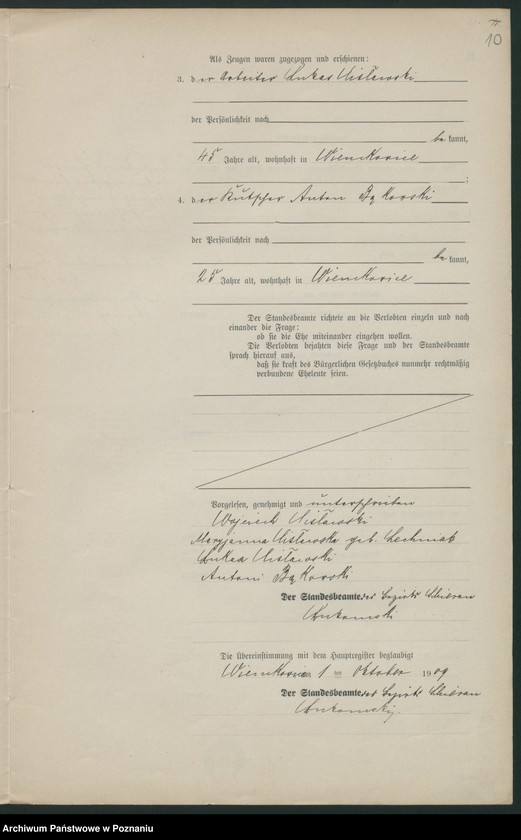 10
Als Zeugen waren zugezogen und erschienen:
3. der Arbeiter Lukas Wisławski
der Persönlichkeit nach
bekannt,
45 Jahre alt, wohnhaft in Wienskowice
;
4. der Kutscher Anton Bąkowski
der Persönlichkeit nach
bekannt,
25 Jahre alt, wohnhaft in Wienskowice
Der Standesbeamte richtete an die Verlobten einzeln und nach
einander die Frage:
ob sie die Ehe miteinander eingehen wollen.
Die Verlobten bejahten diese Frage und der Standesbeamte
sprach hierauf aus,
daß sie kraft des Bürgerlichen Gesetzbuches nunmehr rechtmäßig
verbundene Eheleute seien.
Vorgelesen, genehmigt und unterschrieben
Wojciech Wisławski
Maryjanna Wisławska geb.
Lukas Wisławski
Antoni Bąkowski
Der Standesbeamte. des Bezirks
Die Übereinstimmung mit dem Hauptregister beglaubigt
1 ten Oktober 1909
Der Standesbeamte. des Bezirks
Archiwum Państwowe w Poznaniu